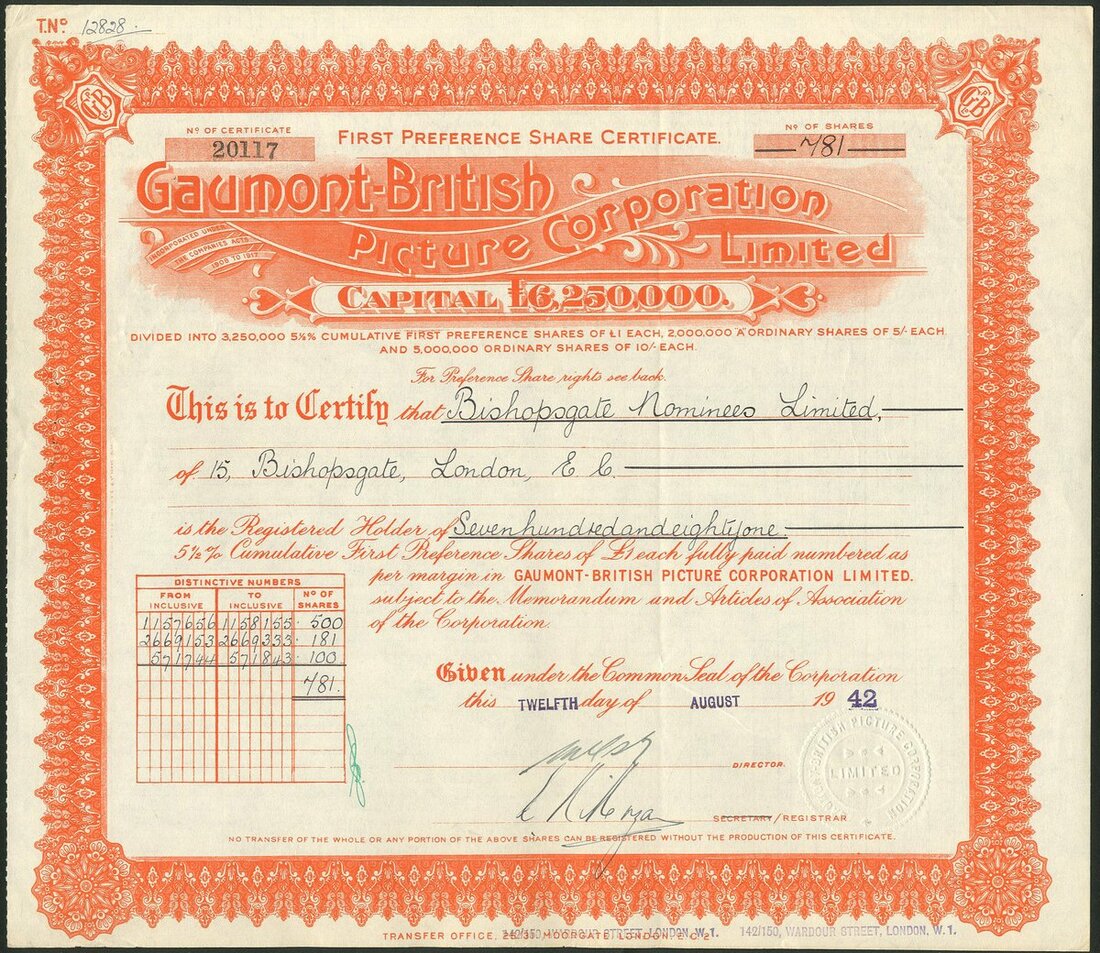 T.Nº 12828.
GB
GB
Nº OF CERTIFICATE
20117
FIRST PREFERENCE SHARE CERTIFICATE.
Nº OF SHARES
781
Gaumont-British
Picture Corporation
Limited
INCORPORATED UNDER
THE COMPANIES ACTS
1908 TO 1917
CAPITAL £6,250,000.
DIVIDED INTO 3,250,000 5½% CUMULATIVE FIRST PREFERENCE SHARES OF £1 EACH, 2,000,000 "A" ORDINARY SHARES OF 5/- EACH
AND 5,000,000 ORDINARY SHARES OF 10/- EACH.
For Preference Share rights see back.
This is to Certify that Bishopsgate Nominees Limited,
of 15, Bishopsgate, London, E.C.
is the Registered Holder of Seven hundred and eighty one
5½% Cumulative First Preference Shares of £1 each fully paid numbered as
per margin in GAUMONT-BRITISH PICTURE CORPORATION LIMITED.
subject to the Memorandum and Articles of Association
of the Corporation.
DISTINCTIVE NUMBERS
FROM INCLUSIVE TO INCLUSIVE Nº OF SHARES
1157656 1158155 500
2669153 2669333 181
571744 571843 100
781.
Given under the Common Seal of the Corporation
this TWELFTH day of AUGUST 1942
DIRECTOR.
SECRETARY/REGISTRAR
GAUMONT-BRITISH PICTURE CORPORATION
LIMITED
NO TRANSFER OF THE WHOLE OR ANY PORTION OF THE ABOVE SHARES CAN BE REGISTERED WITHOUT THE PRODUCTION OF THIS CERTIFICATE.
TRANSFER OFFICE, 25/31 MOORGATE, LONDON, E.C.2
142/150, WARDOUR STREET, LONDON, W.1.
142/150, WARDOUR STREET, LONDON, W.1.